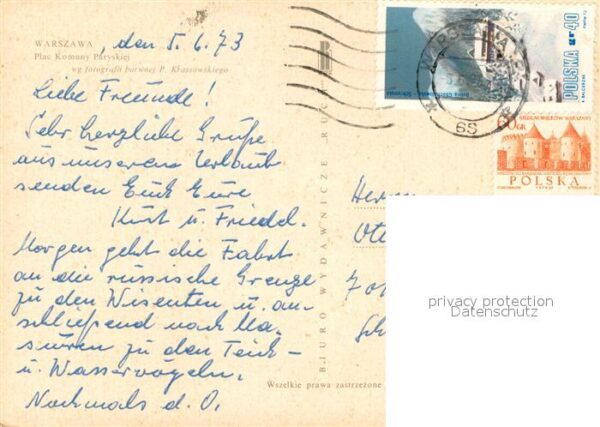 WARSZAWA
Plac Komuny Paryskiej
wg fotografii barwnej P. Krassowskiego
, den 5.6.73
Liebe Freunde!
Sehr herzliche Grüße
aus unserem Urlaub
senden Euch Eure
Kurt u. Friedel.
Morgen geht die Fahrt
an die russische Grenze
zu den Wisenten u. an-
schließend nach Ma-
suren zu den Teich-
u. Wasservögeln.
Nochmals d. O.
BIURO WYDAWNICZE RUCH
Wszelkie prawa zastrzeżone
POLSKA gr 40
60 GR
SIEDEM WIEKÓW WARSZAWY
POLSKA
Herrn
privacy protection
Datenschutz